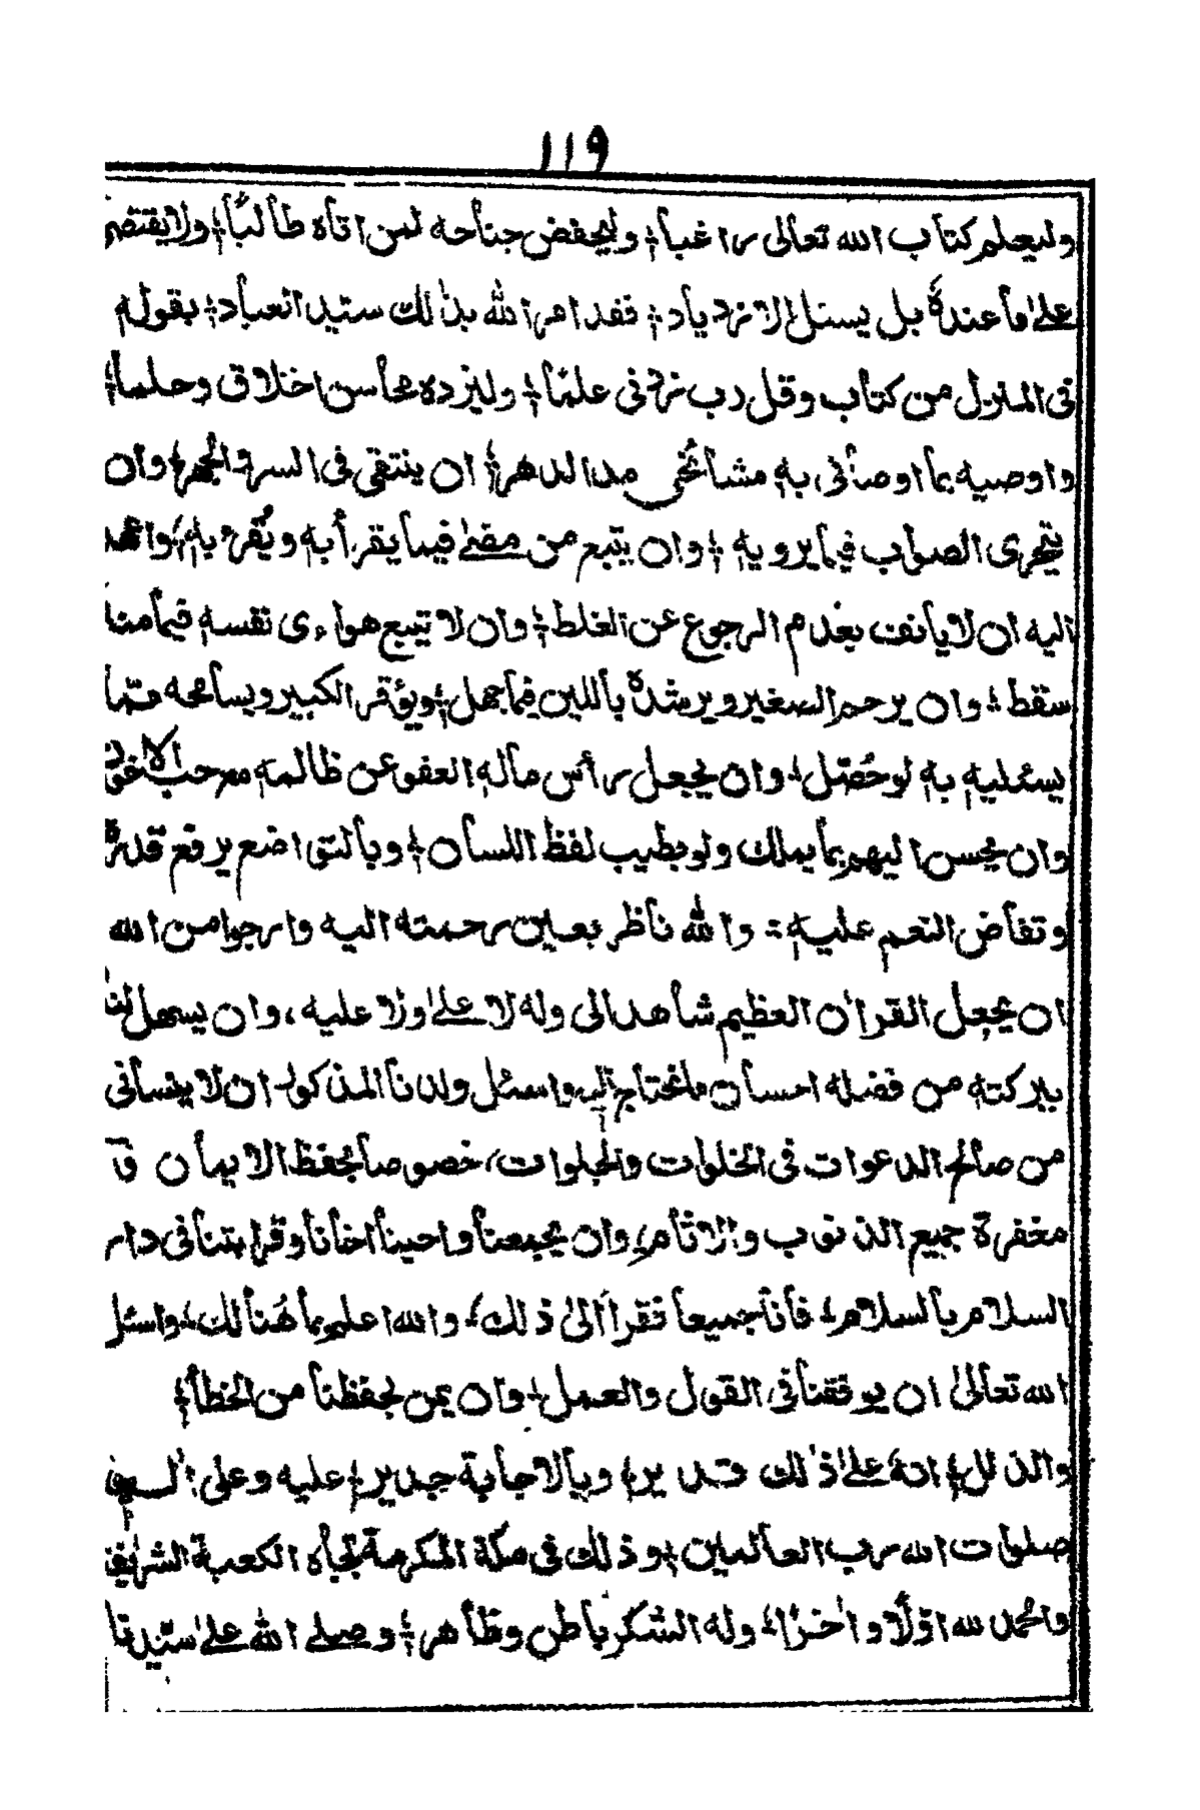 ١١٩
وليعلم كتاب الله تعالى راغباً؛ وليخفض جناحه لمن اتاه طالبًا؛ ولا يقتصر
على ما عندهٗ بل يسئل الازدياد؛ فقد امر الله بذٰلك سيد العباد؛ بقولهٖ
فى المنزل من كتاب وقل رب زدنى علمًا؛ وليزده محاسن اخلاق وحلما؛
واوصيه بما اوصانى بهٖ مشائخى مدا الدهر؛ ان يتقى فى السر والجهر؛ وان
يتحرى الصواب فيما يرويهٖ؛ وان يتبع من مضىٰ فيما يقرأ بهٖ ويُقرء بهٖ؛
اليه ان لا يأنف بعدم الرجوع عن الغلط؛ وان لا يتبع هواءى نفسهٖ فيما منه
سقط؛ وان يرحم الصغير ويرشدهٗ باللين فيما جهل؛ ويؤقر الكبير ويسامحه ممّا
بهٖ لو حُصّل؛ وان يجعل رأس مالهٖ العفو عن ظالمهٖ مرحب
وان يحسن اليهم بما يملك ولو بطيب لفظ اللسان؛ وبالتواضع يرفع قدرهٗ
وتفاض النعم عليهٖ؛ والله ناظر بعين رحمته اليه وارجوا من الله
ان يجعل القراٰن العظيم شاهدا لى وله لا علىٰ ولا عليه، وان يسهل لنا
ببركتهٖ من فضله احسان ما نحتاج اليه واسئل ولدنا المذكور ان لا ينسانى
من صالح الدعوات فى الخلوات والجلوات، خصوصا بحفظ الايمان و
مغفرة جميع الذنوب والاثام؛ وان يجمعنا واحبنا اخانا وقرابتنا فى دار
السلام بالسلام؛ فانا جميعا فقرآ الىٰ ذلك؛ والله اعلم بما هُنالك؛ واسئل
الله تعالىٰ ان يوفقنا فى القول والعمل؛ وان يمن بحفظنا من الخطأ؛
والذلل؛ انهٗ علىٰ ذٰلك قدير؛ وبالاجابة جدير؛ عليه وعلى
صلوات الله رب العالمين؛ وذلك فى مكة المكرمة تجاه الكعبة الشريفة
والحمد لله اوّلًا واٰخرًا؛ وله الشكر باطن وظاهر؛ وصلى الله علىٰ سيدنا